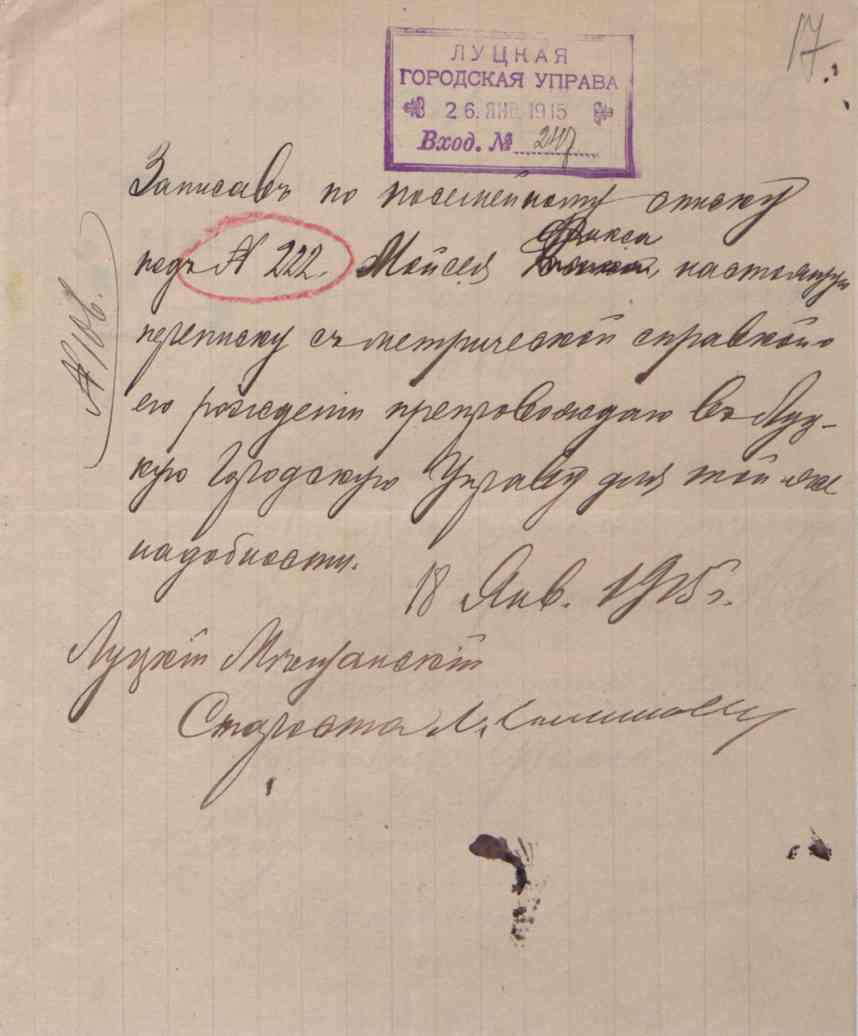 17
ЛУЦКАЯ
ГОРОДСКАЯ УПРАВА
26. ЯНВ 1915
Вход. №
Записавъ по посемейному списку
подъ № 222 Мойсея Факса, настоящую
переписку съ метрической справкой о
его рожденіи препровождаю въ Луц-
кую Городскую Управу для той же
надобности.
18 Янв. 1915 г.
Луцкій Мѣщанскій
Староста
№ 106.